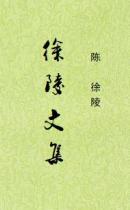 陈 徐陵
徐陵文集